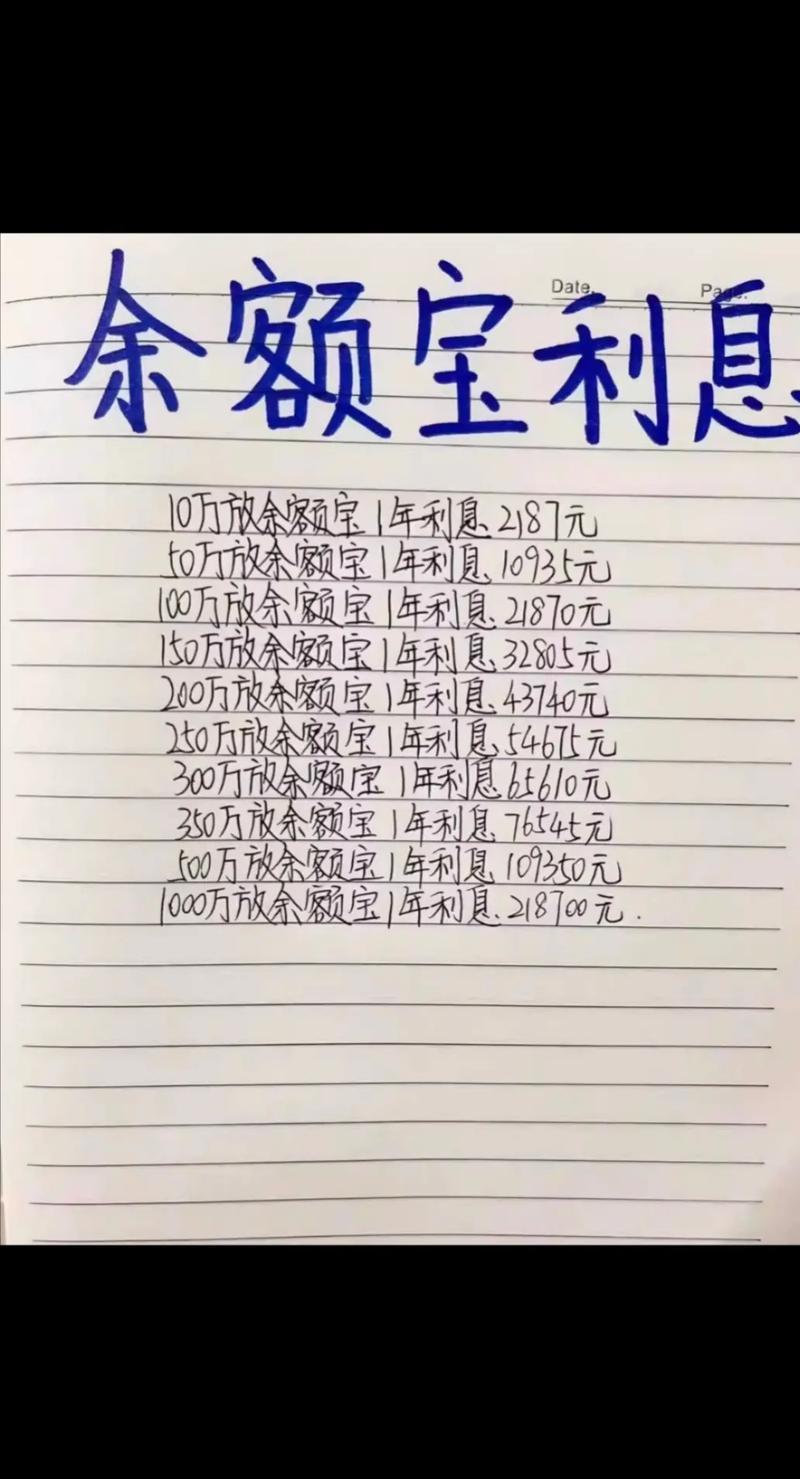 Date.
Page.
余额宝利息
10万放余额宝1年利息2187元
50万放余额宝1年利息10935元
100万放余额宝1年利息21870元
150万放余额宝1年利息32805元
200万放余额宝1年利息43740元
250万放余额宝1年利息54675元
300万放余额宝1年利息65610元
350万放余额宝1年利息76545元
500万放余额宝1年利息109350元
1000万放余额宝1年利息218700元.